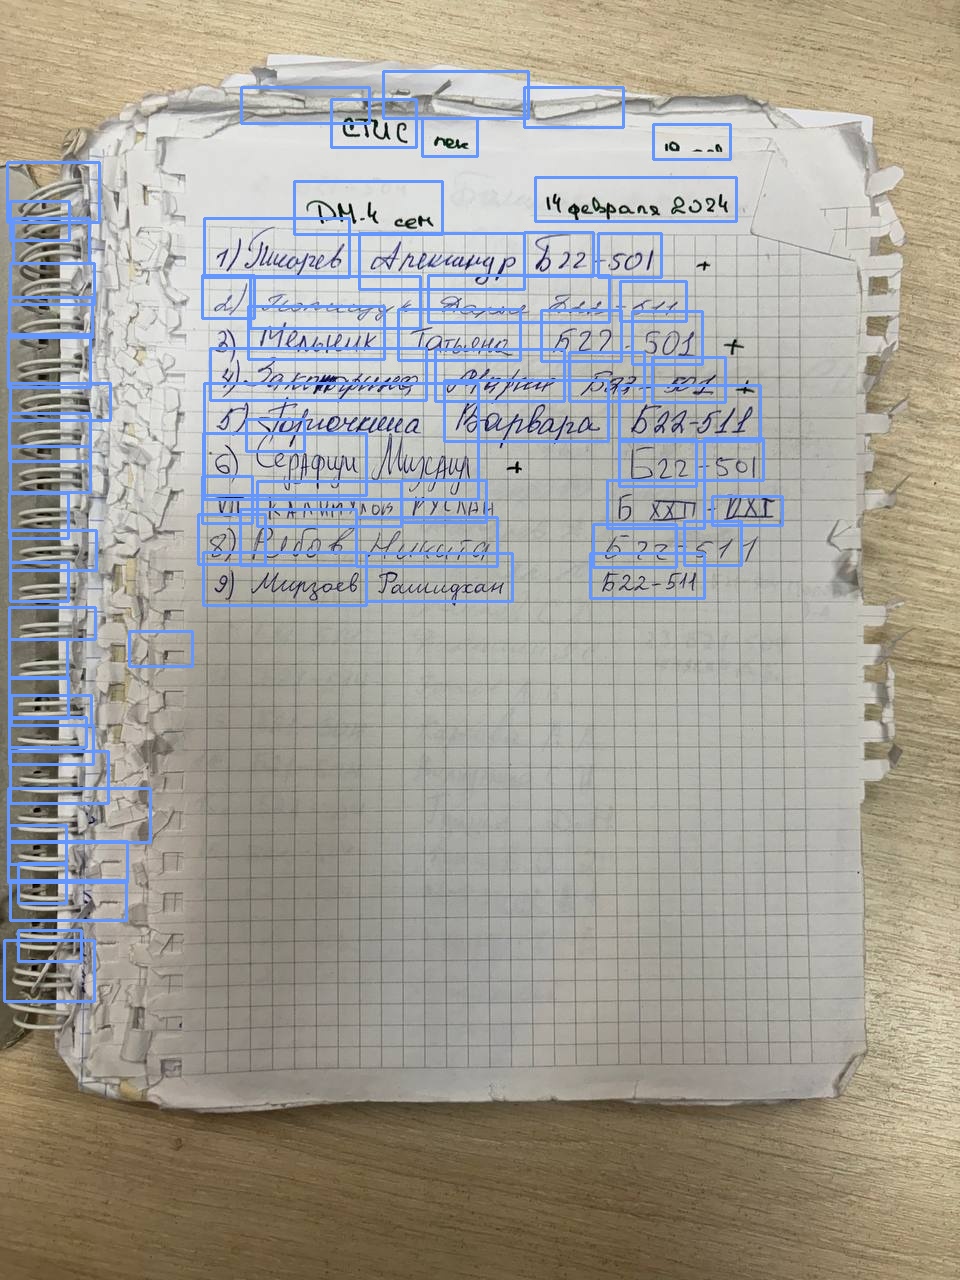 СТИС лек
ДМ-4 сем 14 февраля 2024
1) Писарев Александр Б22-501 +
2) Б22-511
3) Мельник Татьяна Б22-501 +
4) Б22-501 +
5) Горючкина Варвара Б22-511
6) Серафим Михаил + Б22-501
VII КАЛИМУЛОВ РУСЛАН Б XXII - DXI
8) Рябов Никита Б22-511
9) Мирзоев Рашидхан Б22-511